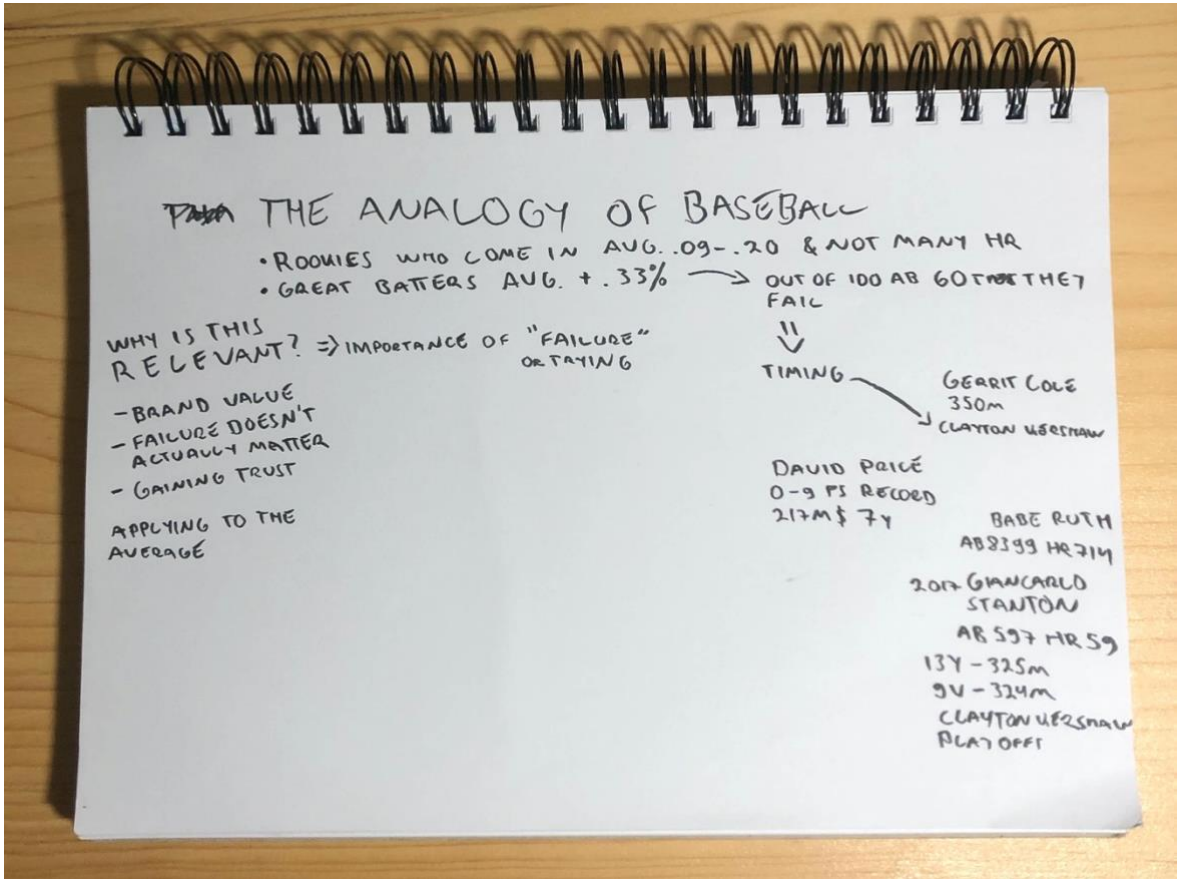 THE ANALOGY OF BASEBALL
• ROOKIES WHO COME IN AUG. .09-.20 & NOT MANY HR
• GREAT BATTERS AUG. + .33% → OUT OF 100 AB 60 THEY
FAIL
⇓
TIMING
GERRIT COLE
350M
CLAYTON KERSHAW
WHY IS THIS
RELEVANT? => IMPORTANCE OF "FAILURE"
OR TRYING
- BRAND VALUE
- FAILURE DOESN'T
ACTUALLY MATTER
- GAINING TRUST
APPLYING TO THE
AVERAGE
DAVID PRICE
0-9 PS RECORD
217M$ 7Y
BABE RUTH
AB 8399 HR 714
2017 GIANCARLO
STANTON
AB 597 HR 59
13Y - 325M
9Y - 324M
CLAYTON KERSHAW
PLAYOFFS